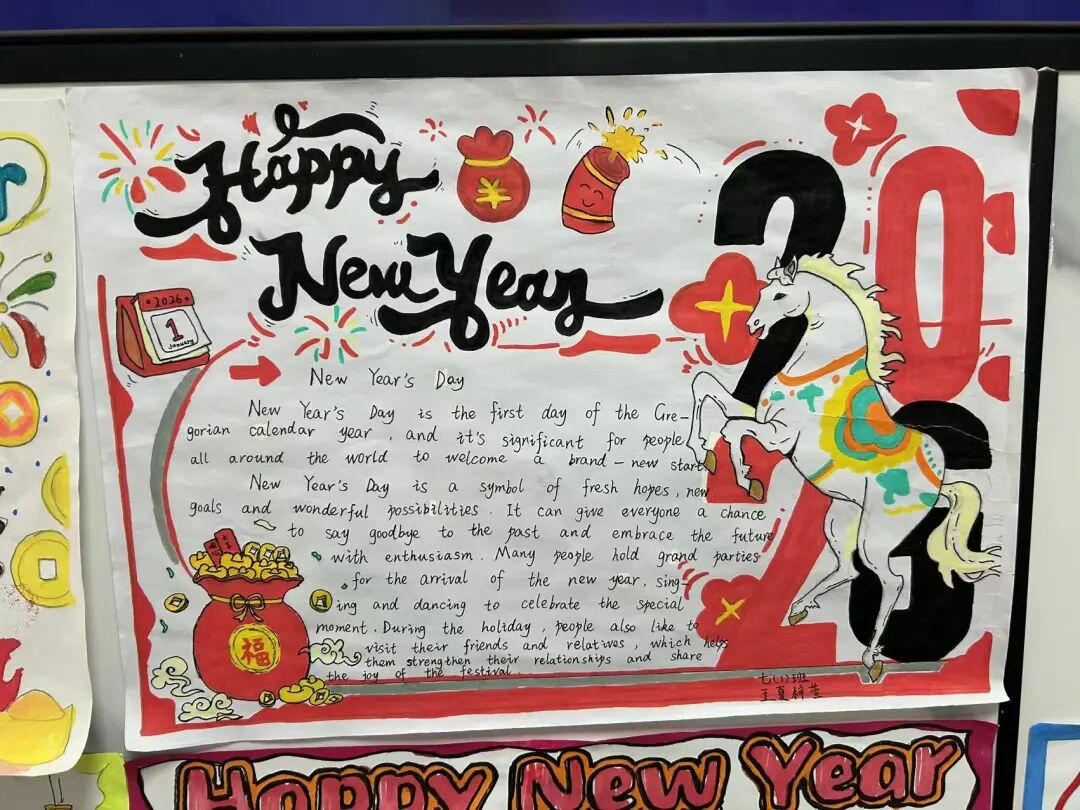 Happy
New Year
2026
2026
1
January
New Year's Day
New Year's Day is the first day of the Gre-
gorian calendar year, and it's significant for people
all around the world to welcome a brand-new start.
New Year's Day is a symbol of fresh hopes, new
goals and wonderful possibilities. It can give everyone a chance
to say goodbye to the past and embrace the future
with enthusiasm. Many people hold grand parties
for the arrival of the new year, sing-
ing and dancing to celebrate the special
moment. During the holiday, people also like to
visit their friends and relatives, which helps
them strengthen their relationships and share
the joy of the festival.
福
七(1)班
王夏梓萱
Happy New Year